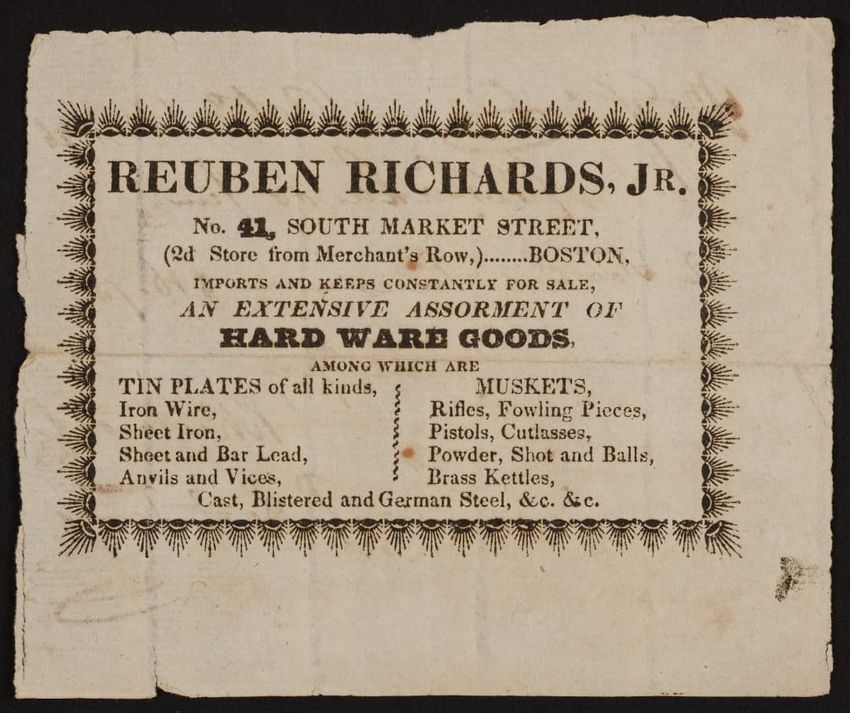 REUBEN RICHARDS, JR.
No. 41, SOUTH MARKET STREET,
(2d Store from Merchant's Row,)........BOSTON,
IMPORTS AND KEEPS CONSTANTLY FOR SALE,
AN EXTENSIVE ASSORMENT OF
HARD WARE GOODS,
AMONG WHICH ARE
TIN PLATES of all kinds,
Iron Wire,
Sheet Iron,
Sheet and Bar Lead,
Anvils and Vices,
MUSKETS,
Rifles, Fowling Pieces,
Pistols, Cutlasses,
Powder, Shot and Balls,
Brass Kettles,
Cast, Blistered and German Steel, &c. &c.